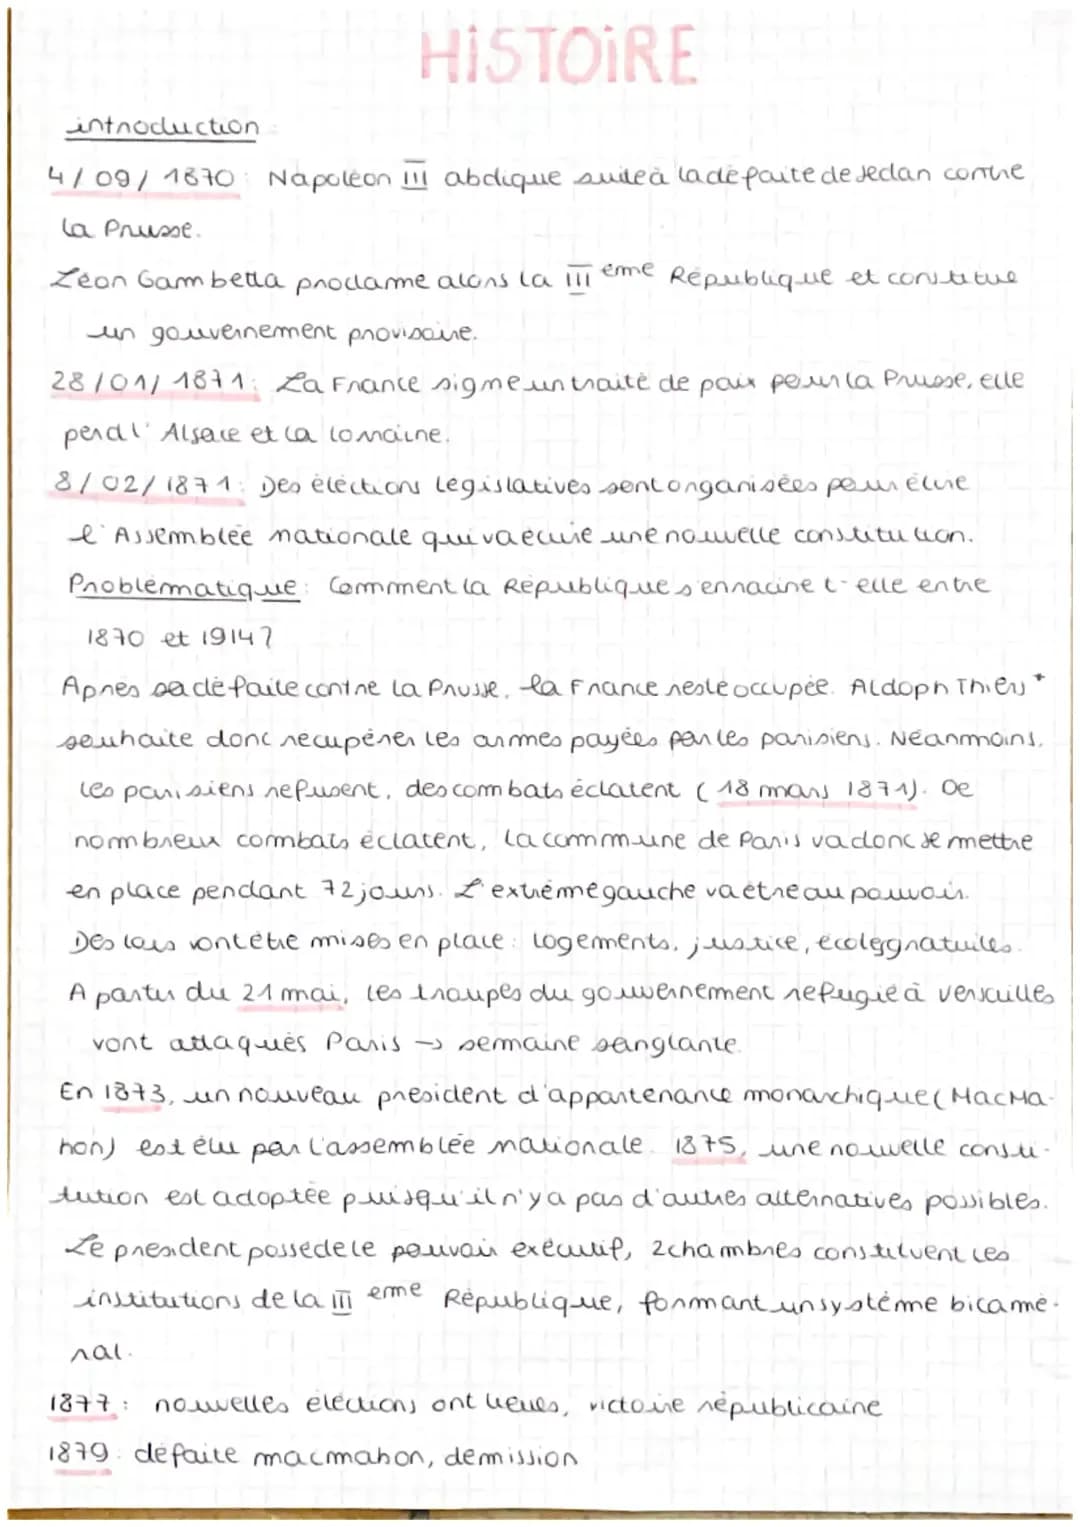 HiSTOiRE
introduction:
4/09/1870: Napoléon III abdique suite à la défaite de Sedan contre
la Prusse.
Léon Gambetta proclame alors la III ème République et constitue
un gouvernement provisoire.
28/01/1871: La France signe un traité de paix pour la Prusse, elle
perd l'Alsace et la lorraine.
8/02/1871: Des élections législatives sont organisées pour élire
l'Assemblée nationale qui va écrire une nouvelle constitution.
Problématique: Comment la République s'enracine t-elle entre
1870 et 1914?
Après sa défaite contre la Prusse, la France reste occupée. Aldoph Thiers*
souhaite donc récupérer les armes payées par les parisiens. Néanmoins,
les parisiens refusent, des combats éclatent (18 mars 1871). De
nombreux combats éclatent, la commune de Paris va donc se mettre
en place pendant 72 jours. L'extrême gauche va être au pouvoir.
Des lois vont être mises en place: logements, justice, écoles gratuites.
A partir du 21 mai, les troupes du gouvernement refugié à versailles
vont attaqués Paris → semaine sanglante.
En 1873, un nouveau président d'appartenance monarchique (MacMa-
hon) est élu par l'assemblée nationale. 1875, une nouvelle consti-
tution est adoptée puisqu'il n'y a pas d'autres alternatives possibles.
Le président possède le pouvoir exécutif, 2 chambres constituent les
institutions de la III ème République, formant un système bicamé-
ral.
1877: nouvelles élections ont lieues, victoire républicaine
1879: défaite macmahon, démission